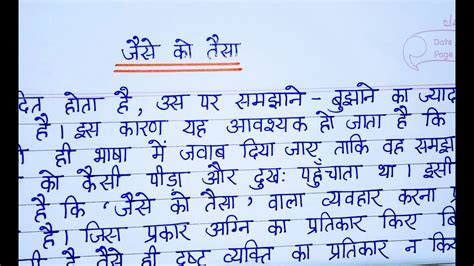 जैसे को तैसा
Date
Page
होता है, उस पर समझाने - बुझाने का ज्याद
है। इस कारण यह आवश्यक हो जाता है कि
ही भाषा में जवाब दिया जाए ताकि वह समझ
को कैसी पीड़ा और दुखः पहुँचाता था। इसी
है कि 'जैसे को तैसा' वाला व्यवहार करना
है। जिस प्रकार अग्नि का प्रतिकार किए
है तैसे ही दुष्ट व्यक्ति का प्रतिकार न